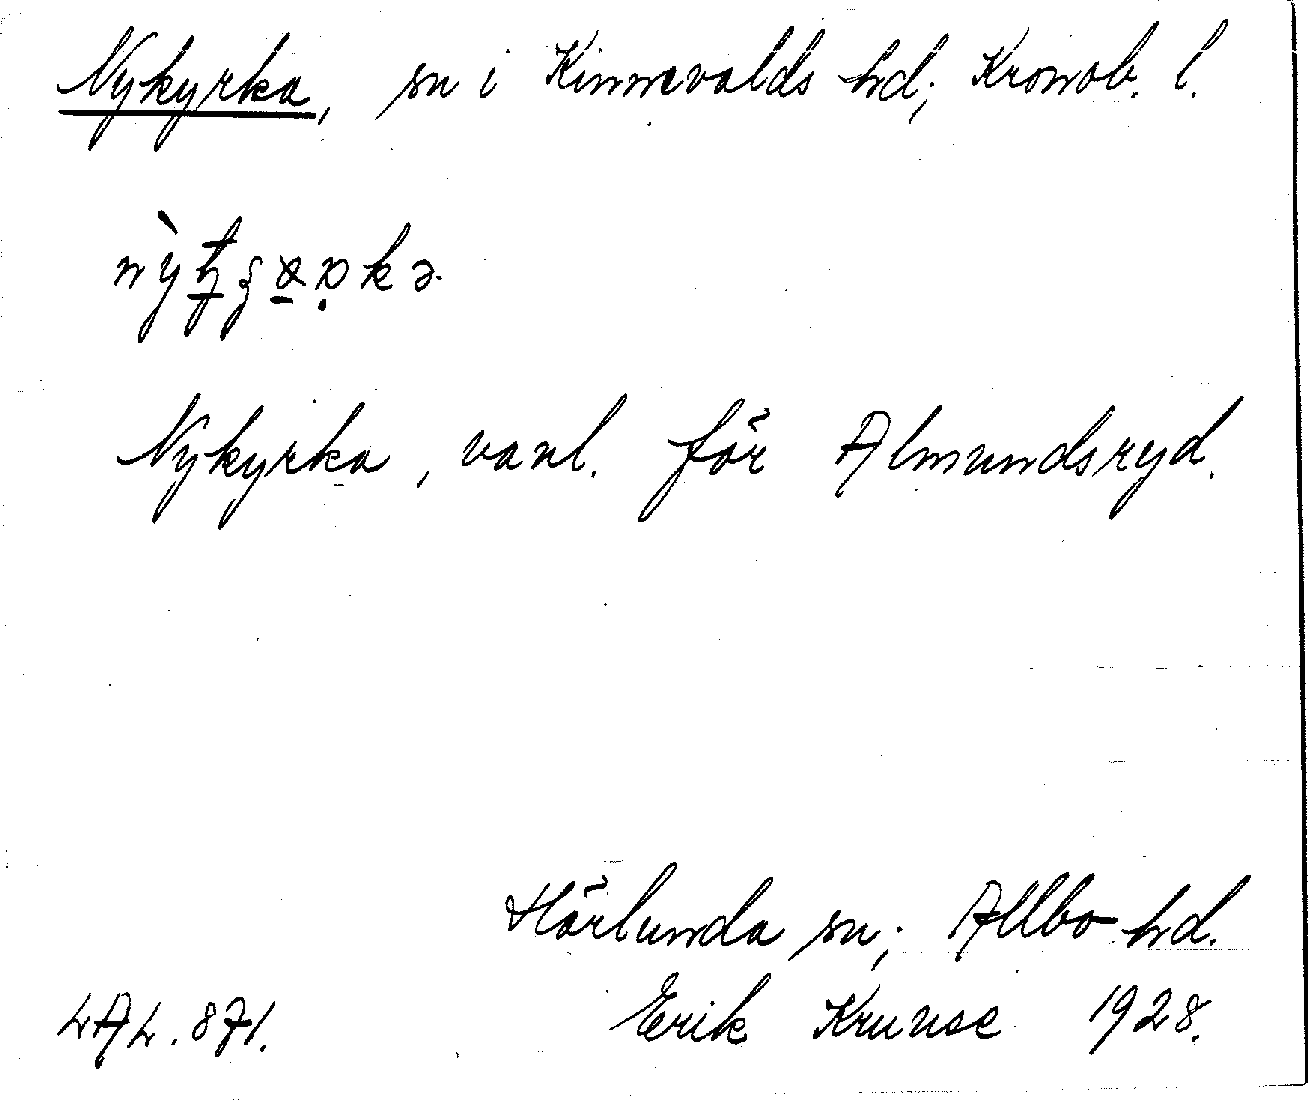 Nykyrka, sn i Kinnevalds hd; Kronob. l.
Nykyrka, vanl. för Almundsryd.
Härlunda sn; Allbo hd.
LAL. 871. Erik Kruuse 1928.